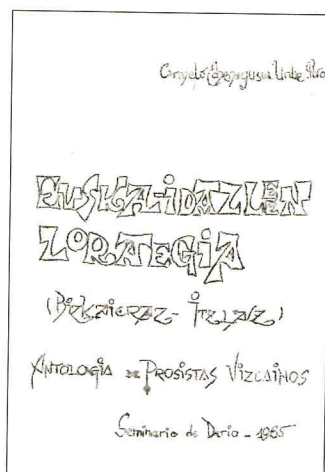 EUSKAL-IDAZLEEN
LORATEGIA
(BIZKAIERAZ - ITZLAUZ)
ANTOLOGIA DE PROSISTAS VIZCAINOS
Seminario de Derio - 1965